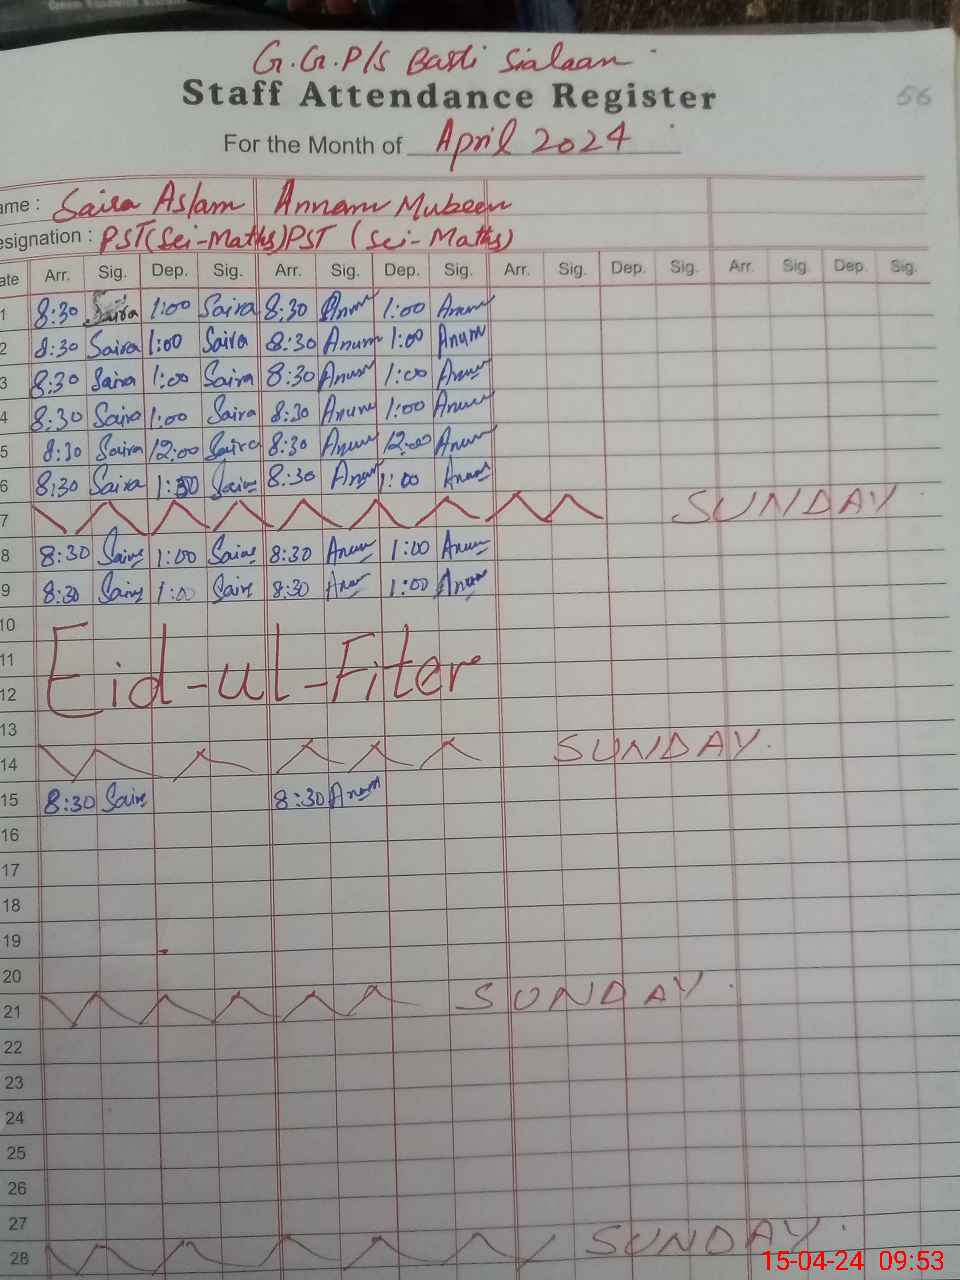 G.G.P/S Basti Sialaan
Staff Attendance Register
56
For the Month of April 2024
ame : Saira Aslam Annam Mubeen
esignation : PST(Sci-Maths) PST (Sci-Maths)
ate Arr. Sig. Dep. Sig. Arr. Sig. Dep. Sig. Arr. Sig. Dep. Sig. Arr. Sig. Dep. Sig.
1 8:30 Saira 1:00 Saira 8:30 Anum 1:00 Anum
2 8:30 Saira 1:00 Saira 8:30 Anum 1:00 Anum
3 8:30 Saira 1:00 Saira 8:30 Anum 1:00 Anum
4 8:30 Saira 1:00 Saira 8:30 Anum 1:00 Anum
5 8:30 Saira 12:00 Saira 8:30 Anum 12:00 Anum
6 8:30 Saira Saira 8:30 Anum 1:00 Anum
7 SUNDAY
8 8:30 Saira 1:00 Saira 8:30 Anum 1:00 Anum
9 8:30 Saira 1:00 Saira 8:30 Anum 1:00 Anum
10
11 Eid-ul-Fiter
12
13
14 SUNDAY.
15 8:30 Saira 8:30 Anum
16
17
18
19
20
21 SUNDAY.
22
23
24
25
26
27
28 SUNDAY.
15-04-24 09:53